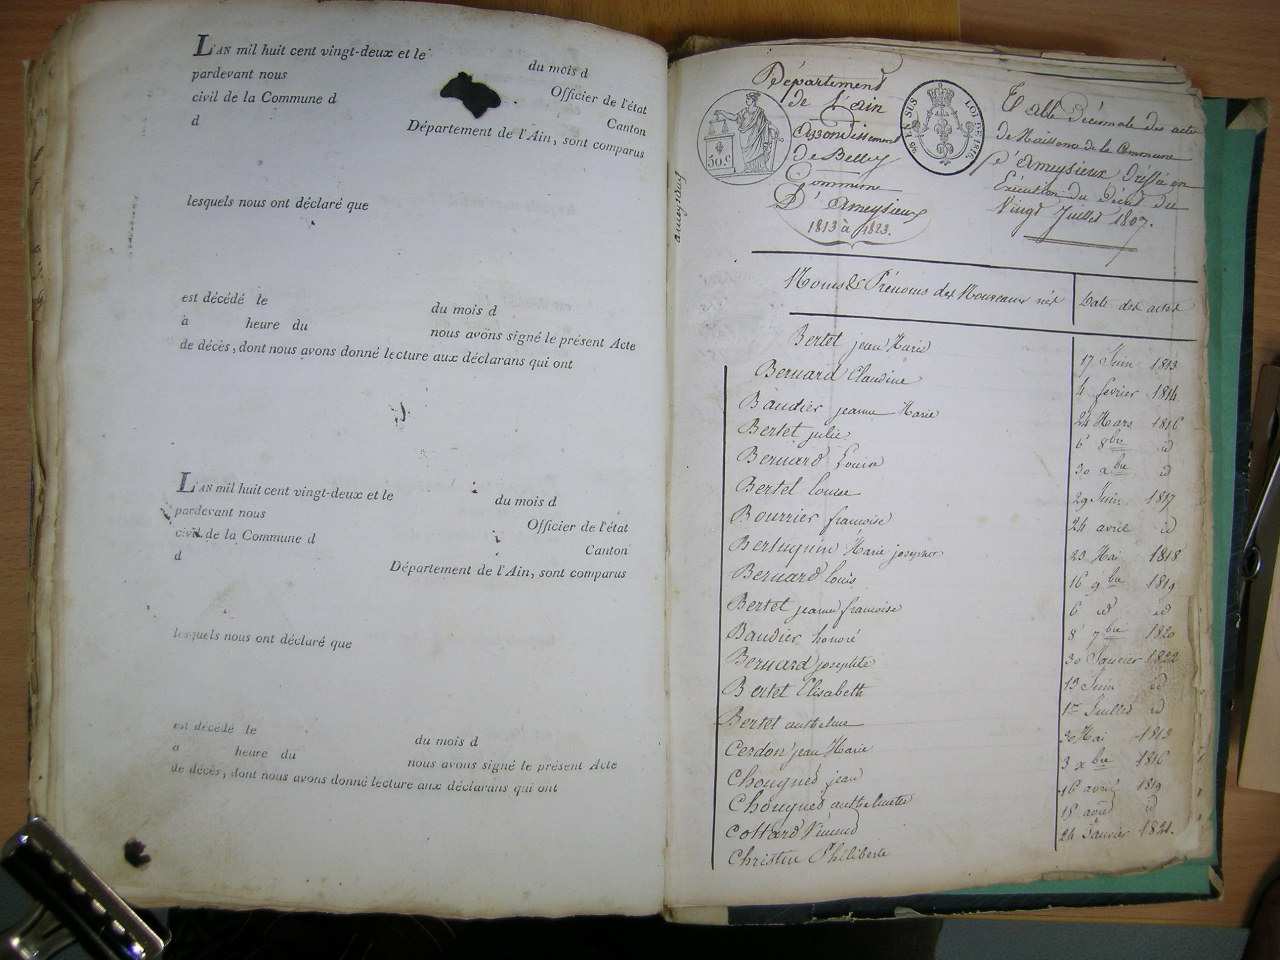 L'AN mil huit cent vingt-deux et le du mois d
pardevant nous Officier de l'état
civil de la Commune d Canton
d Département de l'Ain, sont comparus
lesquels nous ont déclaré que
est décédé le du mois d
à heure du nous avons signé le présent Acte
de décès, dont nous avons donné lecture aux déclarans qui ont
L'AN mil huit cent vingt-deux et le du mois d
pardevant nous Officier de l'état
civil de la Commune d Canton
d Département de l'Ain, sont comparus
lesquels nous ont déclaré que
est décédé le du mois d
a heure du nous avons signé le présent Acte
de décès, dont nous avons donné lecture aux déclarans qui ont
Département
de Lain
Arrondissement
de Belley
Commune
D'Ameysieux
1813 à 1823.
50.c
EN SUS LOI DE 1816.
Table décennale des actes
de Naissance de la Commune
d'Ameysieux dressé en
Exécution du décret du
Vingt Juillet 1807.
ameysieux
Noms & Prénoms des Nouveaux nés Date des actes
Bertet jean Marie 17 Juin 1813
Bernard Claudine 4 fevrier 1814
Baudier jeanne Marie 24 Mars 1816
Bertet julie 6 8bre id
Bernard Louise 30 xbre id
Bertet louise 29 Juin 1817
Bourrier francoise 24 avril id
Bertuquin Marie josephte 23 Mai 1818
Bernard louis 16 9bre 1819
Bertet jeanne francoise 6 id id
Baudier honoré 8 7bre 1820
Bernard josephte 30 Janvier 1822
Bertet Elisabeth 13 Juin id
Bertet anthelme 1er Juillet id
Cerdon jean Marie 30 Mai 1813
Chougnes jean 3 xbre 1816
Chougnes 16 avril 1819
Cottard 18 août id
Christin Philiberte 24 Janvier 1821.